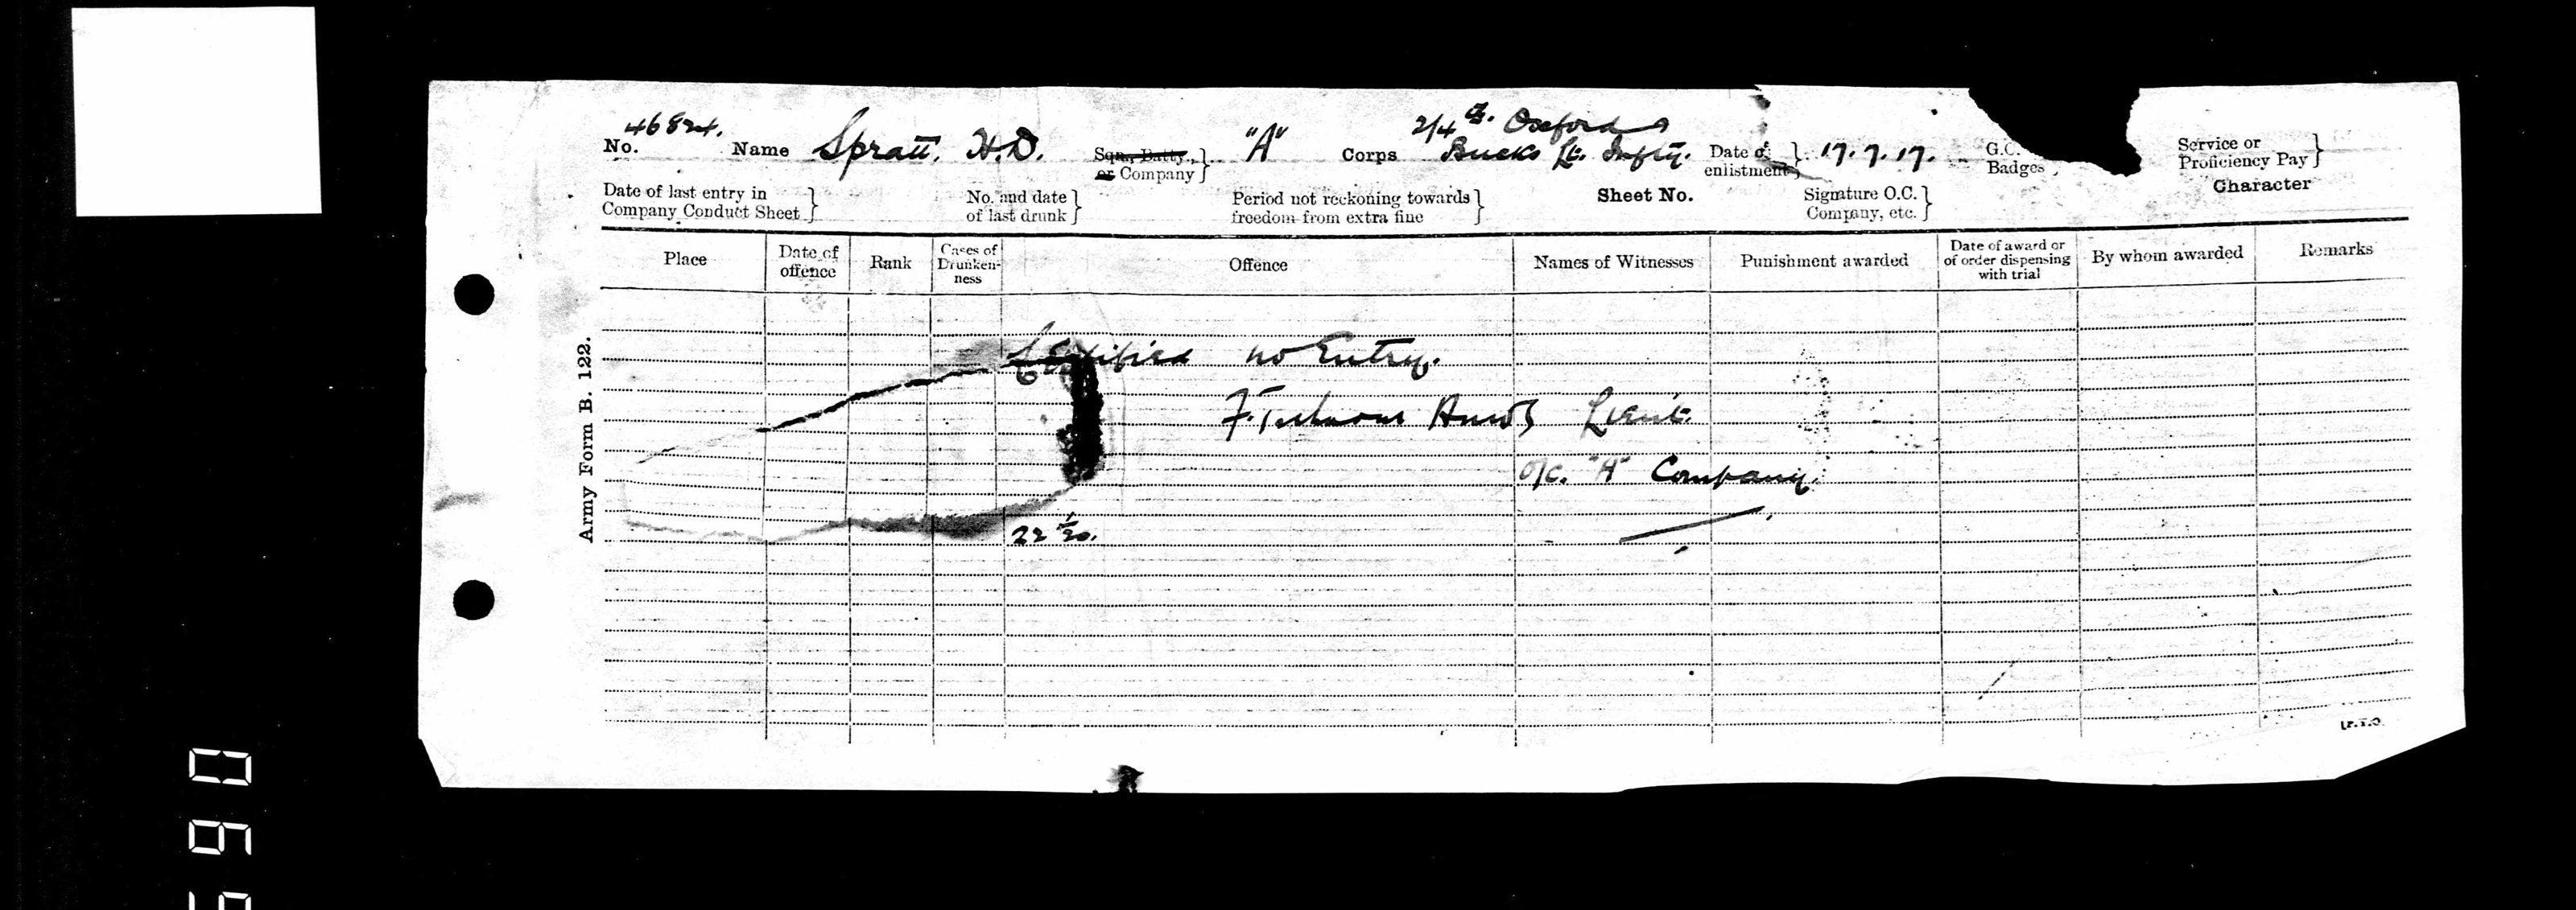 46824.
No. Name Spratt, H.D. Sqn., Batty., or Company} "A" Corps 2/4th Oxford & Bucks Lt. Infty. Date of enlistment} 17.7.17. G.C. Badges Service or Proficiency Pay}
Date of last entry in Company Conduct Sheet} No. and date of last drunk} Period not reckoning towards freedom from extra fine} Sheet No. Signature O.C. Company, etc.} Character
Place Date of offence Rank Cases of Drunkenness Offence Names of Witnesses Punishment awarded Date of award or of order dispensing with trial By whom awarded Remarks
Army Form B. 122.
Certified no Entry.
F. Lieut.
O/C. "A" Company.
22 1/20.
[P.T.O.